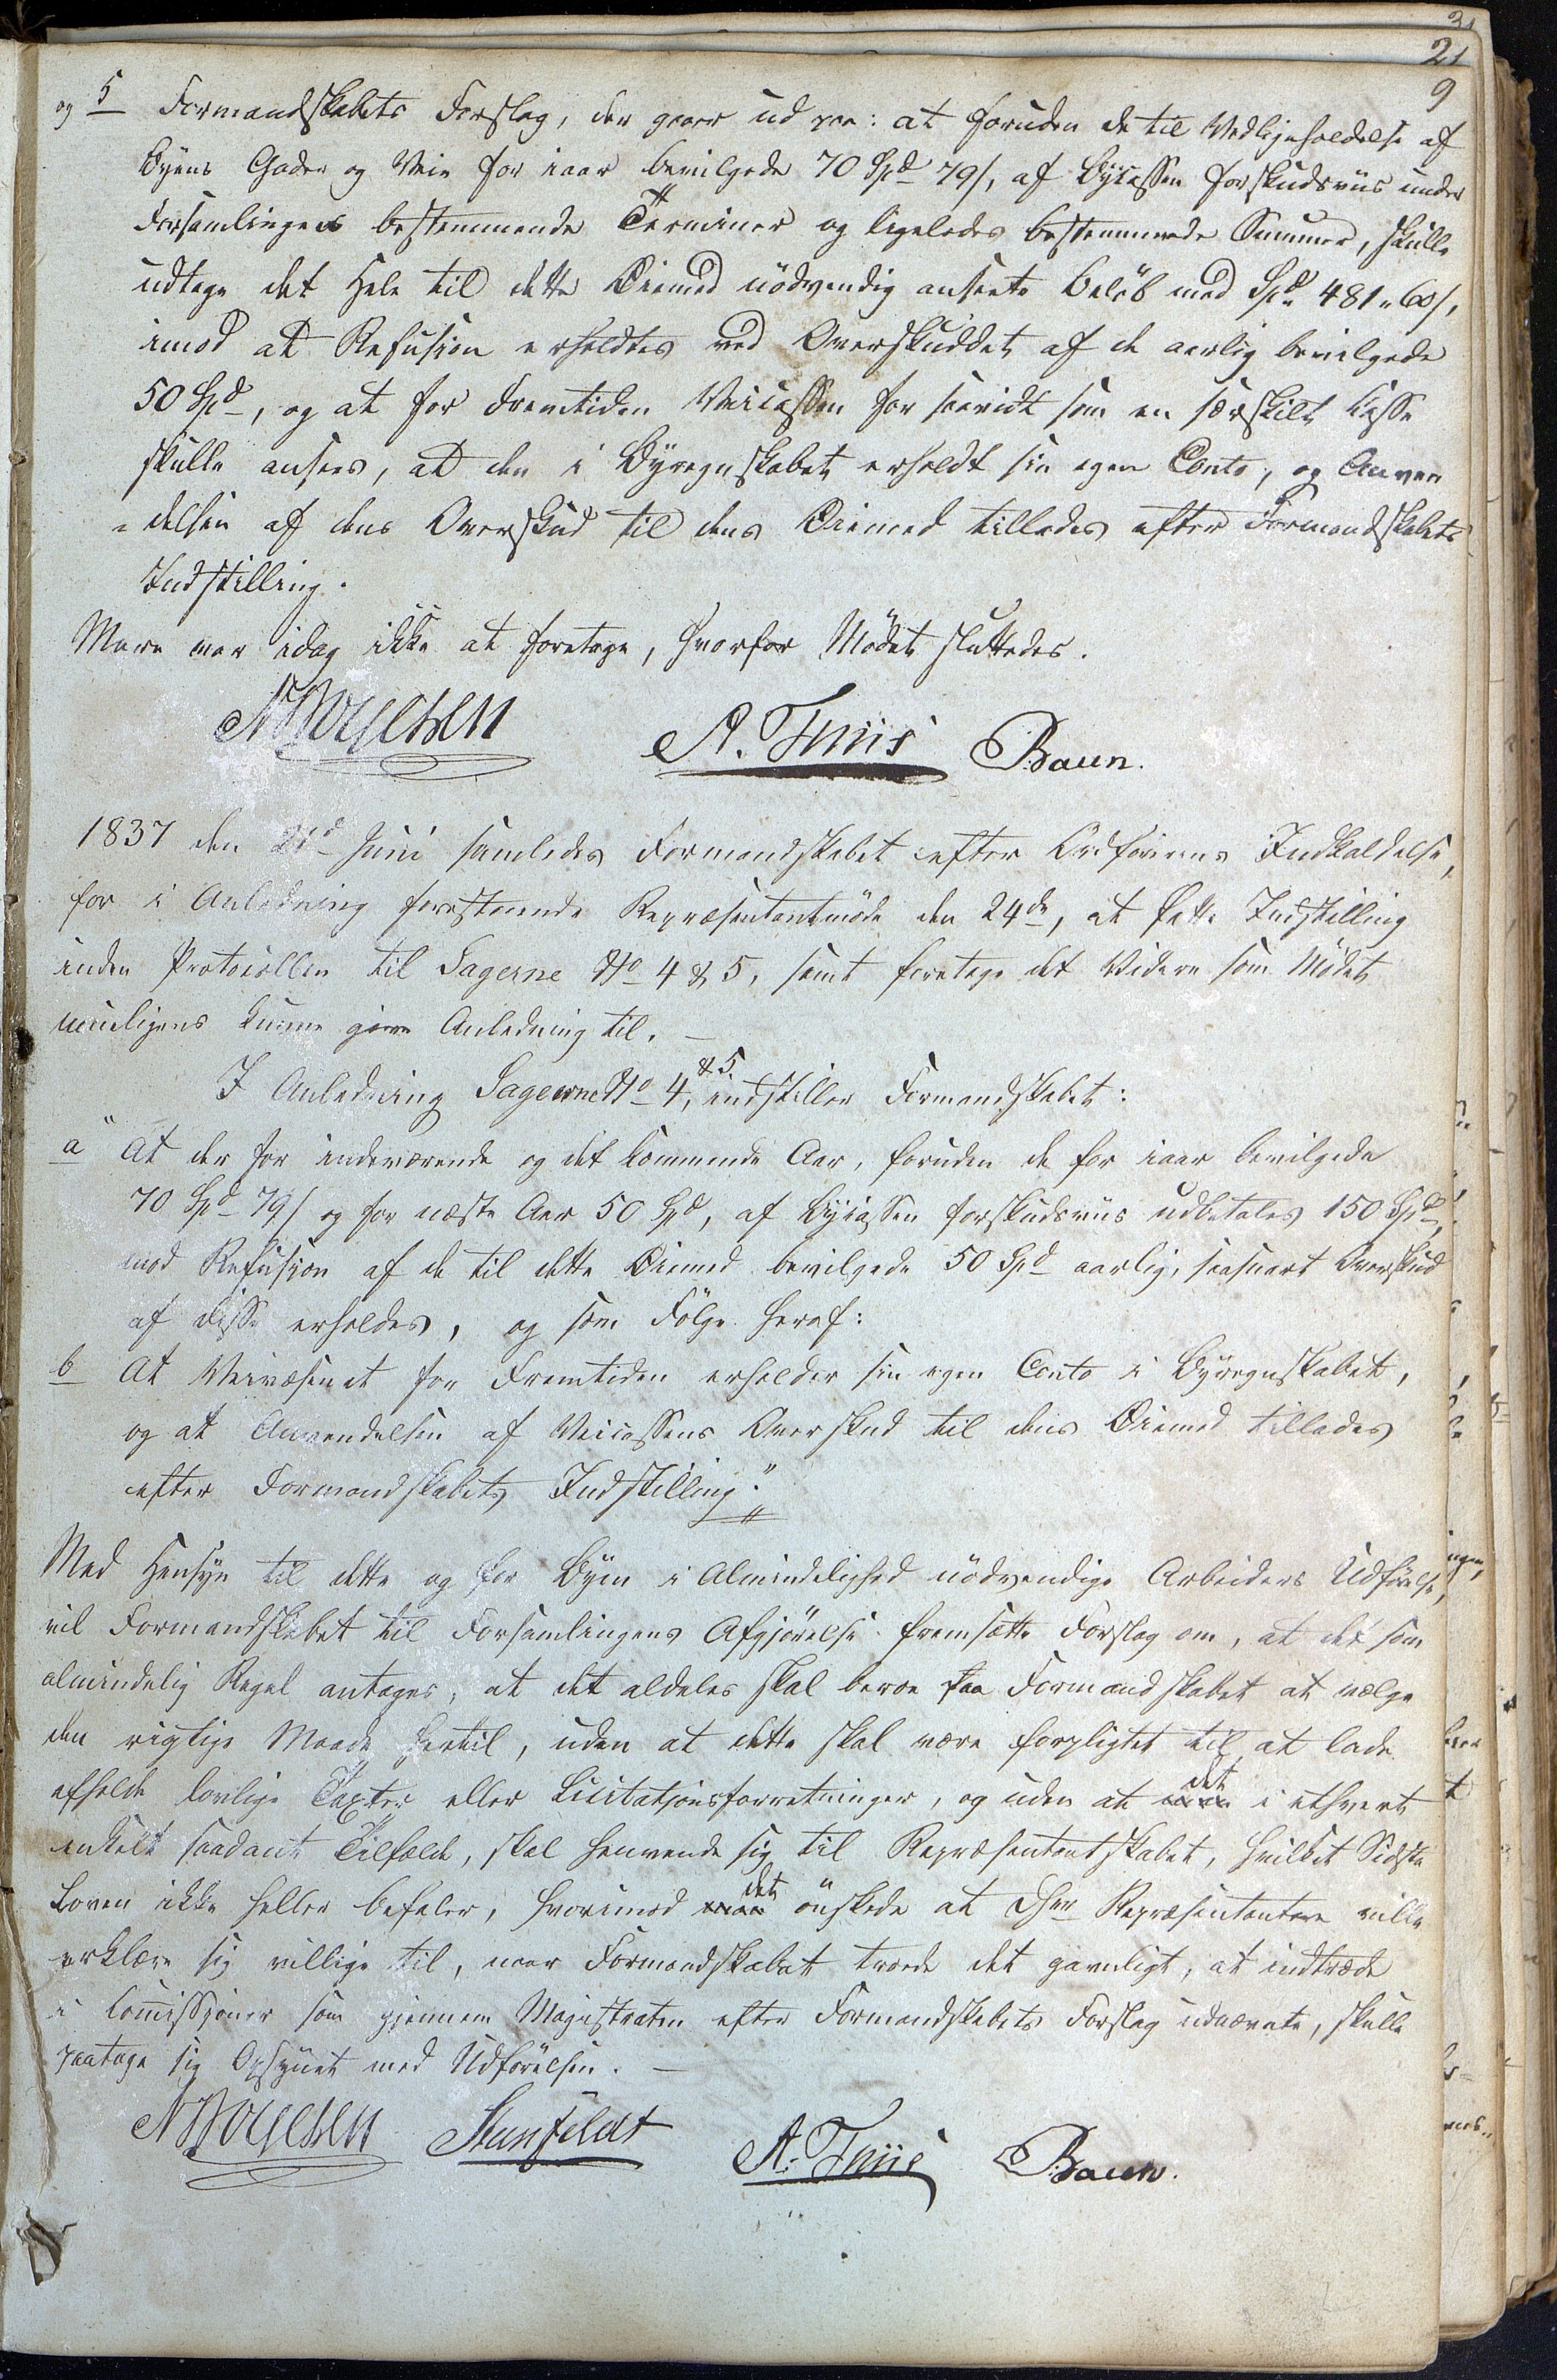 31
21
9
og 5 Formandskabets Forslag, der gaaer ud paa: at foruden de til Vedligeholdelse af
Byens Gader og Veie for iaar bevilgede 70 Spd 79/, af Bycassen forskudsviis under
Forsamlingens bestemmende Terminer og ligeledes bestemmede Summer, skulle
udtage det Hele til dette Øiemed nödvendig ansete Belöb med Spd. 481 " 60/,
imod at Refusion erholdtes ved Overskuddet af de aarlig bevilgede
50 Spd, og at for Fremtiden Veicassen for saavidt som en særskilt Casse
skulle ansees, at den i Byregnskabet erholdt sin egen Conto, og Anven
"delsen af dens Overskud til dens Øiemed tillades efter Formandskabets
Indstilling.
Mere var idag ikke at foretage, hvorfor Mödet sluttedes.
N Boyesen A. Thiis Baun.
1837 den 21d Juni samledes Formandskabet efter Ordförerens Indkaldelse,
for i Anledning forestaaende Repræsentantmöde den 24de, at fatte Indstilling
inden Protocollen til Sagerne No 4 & 5, samt foretage det Videre som Mödet
mueligens kunne give Anledning til. —
I Anledning Sagerne No 4, & 5 indstiller Formandskabet:
a "At der for indeværende og det kommende Aar, foruden de for iaar bevilgede
70 Spd 79/ og for næste Aar 50 Spd, af Bycassen forskudsviis udbetales 150 Spd,
mod Refusion af de til dette Øiemed bevilgede 50 Spd aarlig, saasnart Overskud
af disse erholdes, og som Fölge heraf:
b At Veivæsenet for Fremtiden erholder sin egen Conto i Byregnskabet,
og at Anvendelsen af Veicassens Overskud til dens Øiemed tillades
efter Formandskabets Indstilling."
Med Hensyn til dette og for Byen i Almindelighed nödvendige Arbeiders Udförelse,
vil Formandskabet til Forsamlingens Afgjörelse fremsætte Forslag om, at det som
almindelig Regel antages, at det aldeles skal beroe paa Formandskabet at vælge
den rigtige Maade hertil, uden at dette skal være forpligtet til at lade
afholde lovlige Taxter eller Licitationsforretninger, og uden at det i ethvert
enkelt saadant Tilfælde, skal henvende sig til Repræsentantskabet, hvilket Sidste
Loven ikke heller befaler, hvorimod det önskede at Dhrr Repræsentantere ville
erklære sig villige til, naar Formandskabet troede det gavnligt, at indtræde
i Comissioner som gjennem Magistraten efter Formandskabets Forslag udnævnte, skulle
paatage sig Opsynet med Udförelsen. —
N Boyesen Stenfeldt A. Thiis Baun.